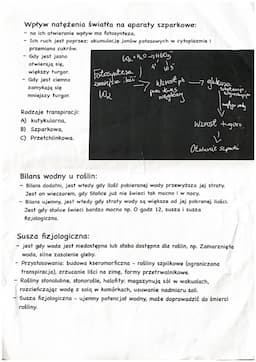 Wpływ natężenia światła na aparaty szparkowe:
- na ich otwieranie wpływ ma fotosynteza,
- Ich ruch jest poprzez: akumulację jonów potasowych w cytoplazmie i
przemianę cukrów.
- Gdy jest jasno
otwierają się,
większy turgor.
- Gdy jest ciemno
zamykają się
mniejszy turgor.
Fotosynteza
CO₂
Wzrost pH
glukoza
Wzrost turgoru
Otwarcie szparki
Rodzaje transpiracji:
A) kutykularna,
B) Szparkowa,
C) Przetchlinkowa.
Bilans wodny u roślin:
- Bilans dodatni, jest wtedy gdy ilość pobieranej wody przewyższa jej straty.
Jest on wieczorem, gdy Słońce już nie świeci tak mocno i w nocy.
- Bilans ujemny, jest wtedy gdy straty wody są większe od jej pobranej ilości.
Jest gdy słońce świeci bardzo mocno np. O godz 12, susza i susza
fizjologiczna.
Susza fizjologiczna:
- jest gdy woda jest niedostępna lub słabo dostępna dla roślin, np. Zamarznięta
woda, silne zasolenie gleby.
- Przystosowania: budowa kseromorficzna - rośliny szpilkowe (ograniczona
transpiracja), zrzucanie liści na zimę, formy przetrwalnikowe.
- Rośliny słonolubne, słonorośle, halofity: magazynują sól w wakuolach,
rozcieńczając wodę z solą w komórkach, usuwanie nadmiaru soli.
- Susza fizjologiczna - ujemny potencjał wodny, może doprowadzić do śmierci
rośliny.